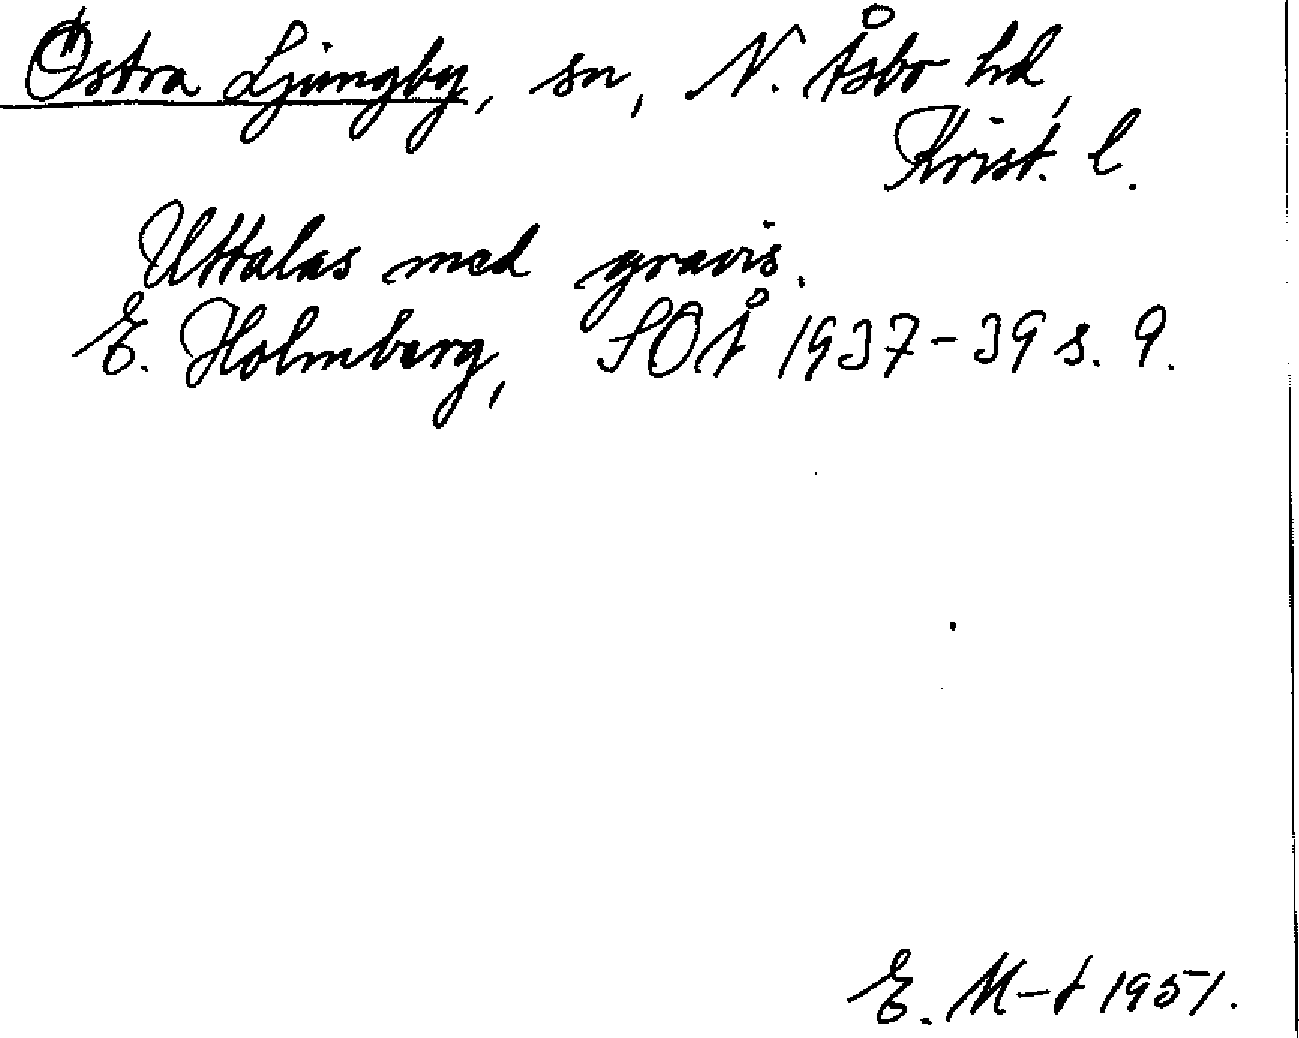 Östra Ljungby, sn, N. Åsbo hd,
Krist. l.
Uttalas med gravis.
E. Holmberg, SOÅ 1937-39 s. 9.
E. M-t 1951.